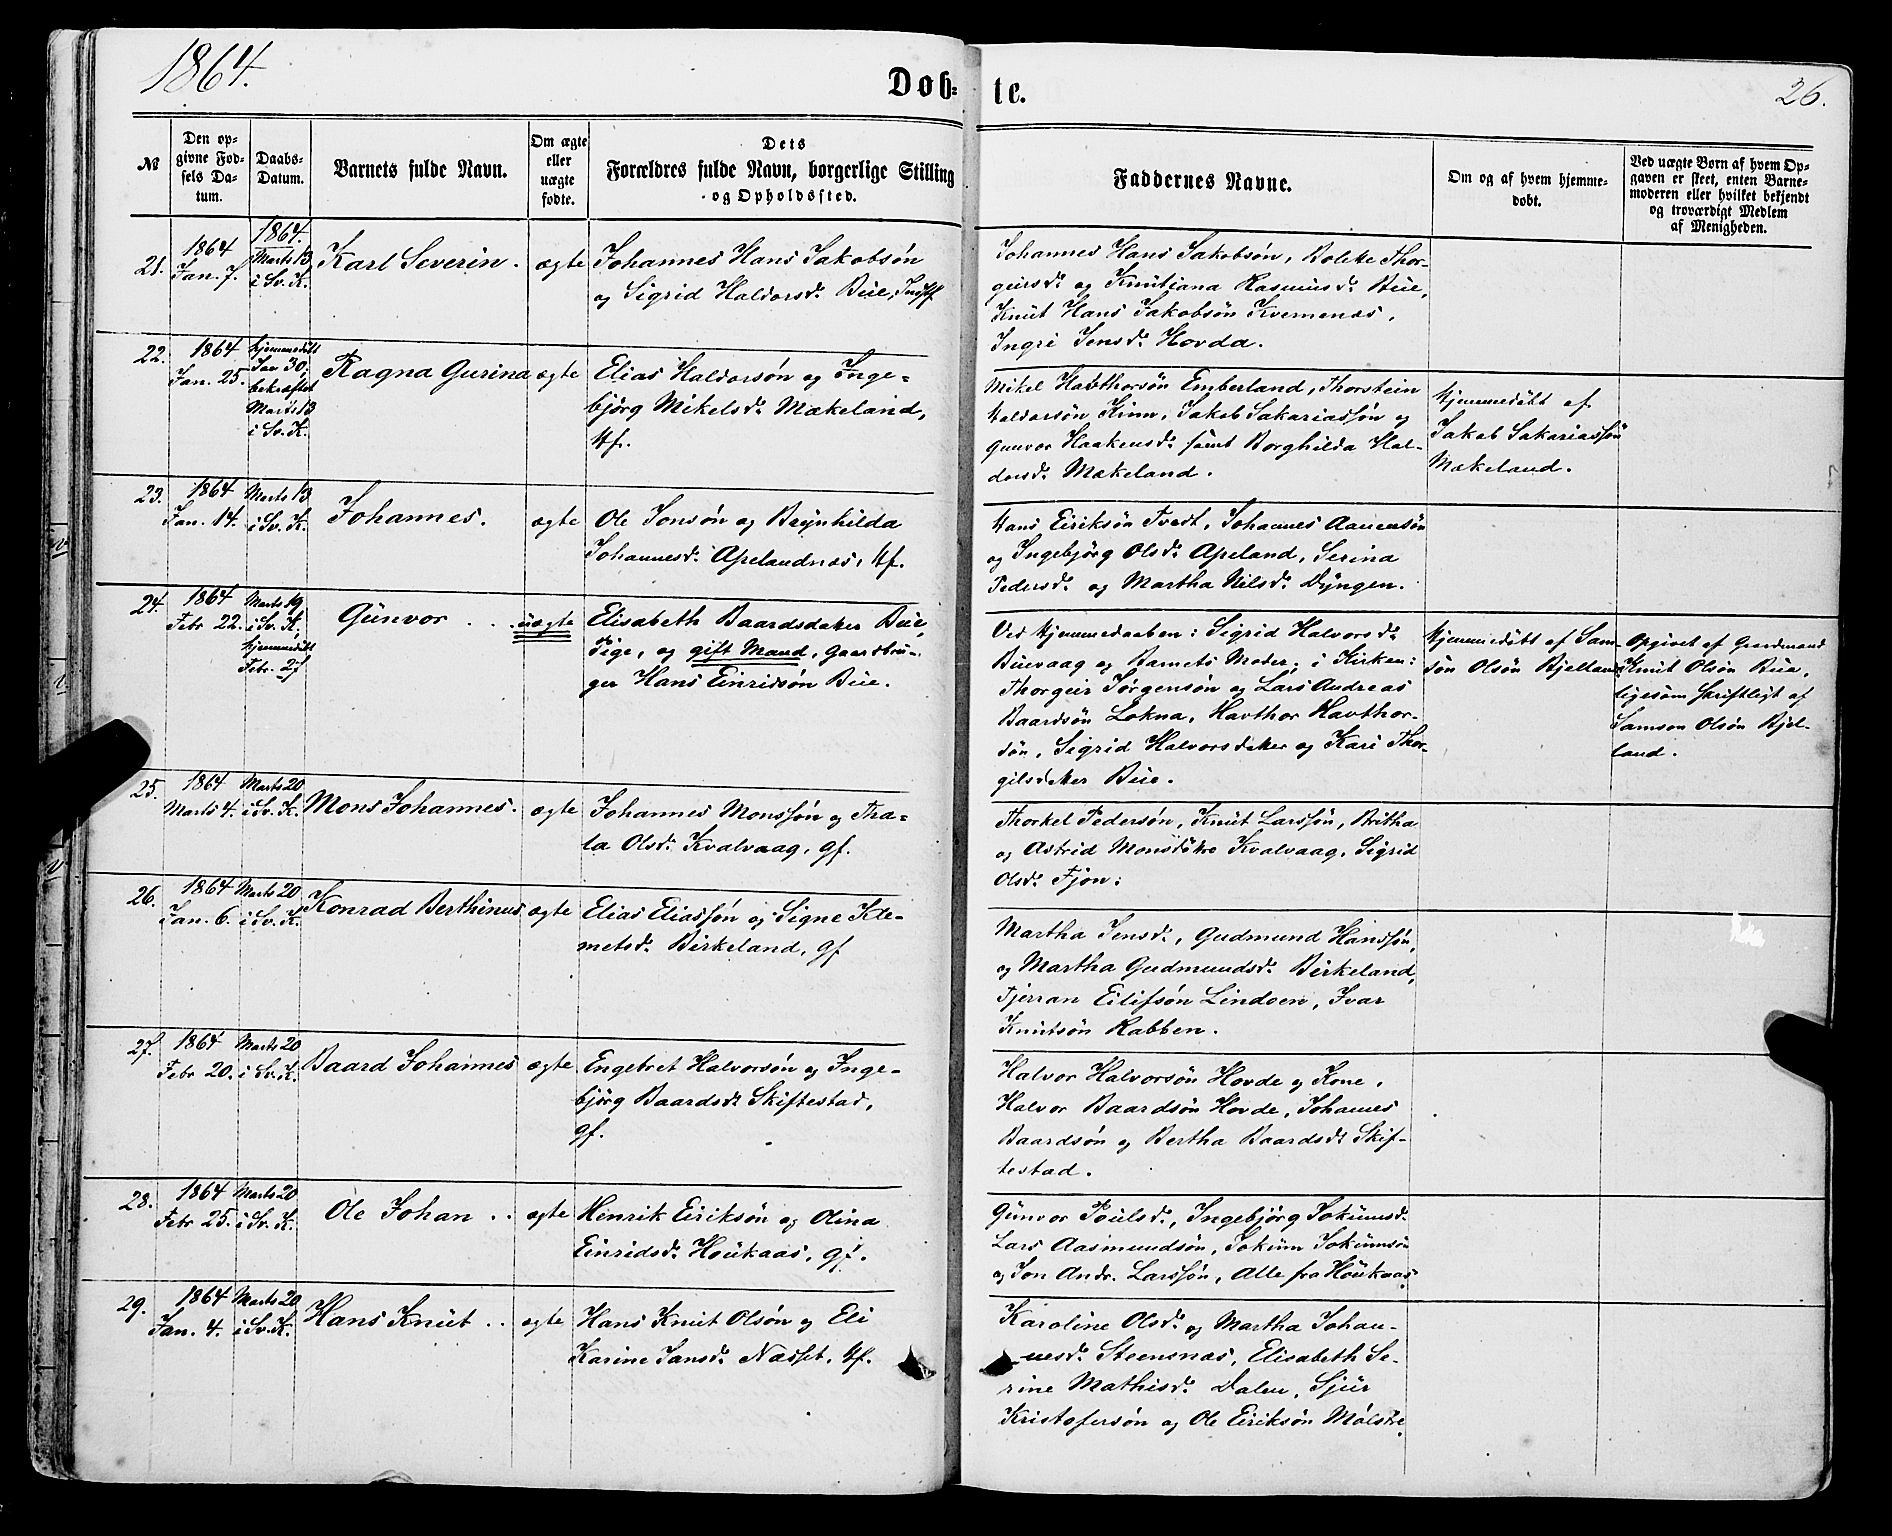 1864.
Døb-
te.
26.
№
Den op-
givne Fød-
sels Da-
tum.
Daabs-
Datum.
Barnets fulde Navn.
Om ægte
eller
uægte
fødte.
Dets
Forældres fulde Navn, borgerlige Stilling
og Opholdssted.
Faddernes Navne.
Om og af hvem hjemme-
døbt.
Ved uægte Børn af hvem Op-
gaven er skeet, enten Barne-
moderen eller hvilket bekjendt
og troværdigt Medlem
af Menigheden.
21.
1864
Jan. 7.
1864.
Marts 13
i Sv. K.
Karl Severin.
ægte
Johannes Hans Jakobsøn
og Sigrid Haldorsd. Bue, Indst
Johannes Hans Jakobsøn, Bolette Thor-
geirsd. og Knutiana Rasmusd. Bue,
Knut Hans Jakobsøn Kvernenæs,
Ingri Jensd. Hovda.
22.
1864
Jan. 25.
hjemmedøbt
Jan 30,
bekræftet
Marts 13
i Sv. K.
Ragna Gurina
ægte
Elias Haldorsøn og Inge-
bjørg Mikelsd. Mækeland,
Hf.
Mikel Havthorsøn Emberland, Thorstein
Haldorsøn Kinn, Jakob Sakariassøn og
Gunvor Haakensd. samt Borghilda Hal-
dorsd. Mækeland.
Hjemmedøbt af
Jakob Sakariassøn
Mækeland.
23.
1864
Jan. 14.
Marts 13
i Sv. K.
Johannes.
ægte
Ole Jonsøn og Brynhilda
Johannesd. Apelandnæs, Hf.
Hans Eiriksøn Tvedt, Johannes Aanensøn
og Ingebjørg Olsd. Apeland, Serina
Pedersd. og Martha Nilsd. Dyngen.
24.
1864
Febr 22.
Marts 19
i Sv. K,
hjemmedøbt
Febr. 27
Gunvor . . .
uægte
Elisabeth Baardsdatter Bue,
Pige, og gift Mand, Gaardbru-
ger Hans Einridsøn Bue.
Ved Hjemmedaaben: Sigrid Halvorsd.
Buevaag og Barnets Moder; i Kirken:
Thorgeir Jørgensøn og Lars Andreas
Baardsøn Lokna, Havthor Havthor-
søn, Sigrid Halvorsdatter og Kari Thor-
gilsdatter Bue.
Hjemmedøbt af Sam-
søn Olsøn Bjelland
Opgivet af Gaardmand
Knut Olsøn Bue,
ligesom skriftligt af
Samson Olsøn Bjel-
land.
25.
1864
Marts 4.
Marts 20
i Sv. K.
Mons Johannes.
ægte
Johannes Monssøn og Tha-
la Olsd. Kvalvaag, Gf.
Thorkel Pedersøn, Knut Larssøn, Britha
og Astrid Monsdøtre Kvalvaag, Sigrid
Olsd. Fjon:
26.
1864
Jan. 6.
Marts 20
i Sv. K.
Konrad Berthinus
ægte
Elias Eliassøn og Signe Kle-
metsd. Birkeland, Gf
Martha Jensd., Gudmund Hanssøn,
og Martha Gudmundsd. Birkeland,
Tjerran Eilifsøn Lindøen, Ivar
Knutsøn Rabben.
27.
1864
Febr 20.
Marts 20
i Sv. K.
Baard Johannes
ægte
Engebret Halvorsøn og Inge-
bjørg Baardsd. Skiftestad,
Gf.
Halvor Halvorsøn Hovde og Kone,
Halvor Baardsøn Hovde, Johannes
Baardsøn og Bertha Baardsd. Skif-
testad.
28.
1864
Febr 25.
Marts 20
i Sv. K.
Ole Johan . .
ægte
Henrik Eiriksøn og Olina
Einridsd. Houkaas, Gf.
Gunvor Poulsd., Ingebjørg Jokumsd.
Lars Aasmundsøn, Jokum Jokumsøn
og Jon Andr. Larssøn, Alle fra Houkaas.
29.
1864
Jan. 4.
Marts 20
i Sv. K.
Hans Knut . .
ægte
Hans Knut Olsøn og Eli
Karine Jansd. Næsset, Hf.
Karoline Olsd. og Martha Johan-
nesd. Steensnæs, Elisabeth Se-
rine Mathisd. Dalen, Sjur
Kristofersøn og Ole Eiriksøn Mølstre.